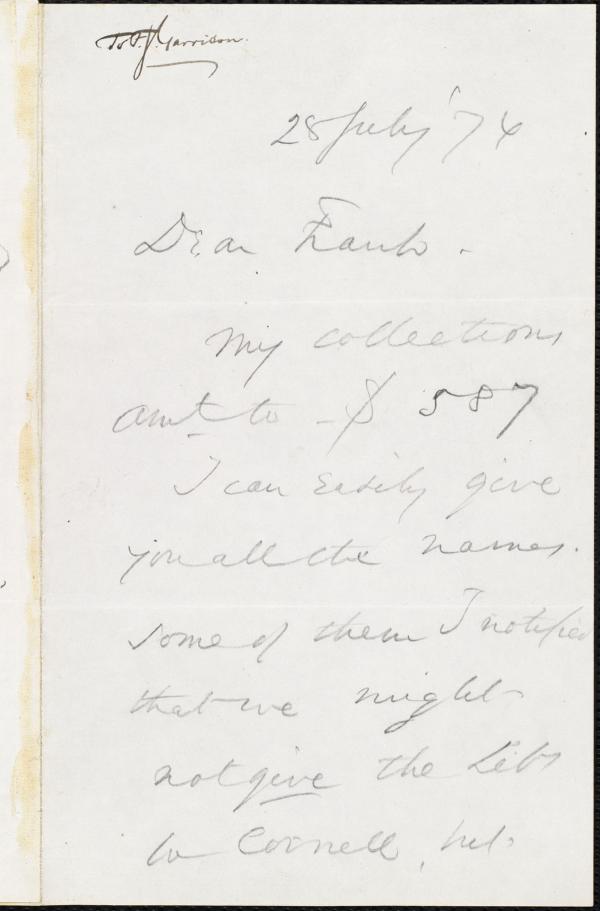 To F. J. Garrison.
28 July '74
Dear Frank.
My collections
amt to - $ 587
I can easily give
you all the names.
some of them I notified
that we might
not give the Libs
to Cornell, but